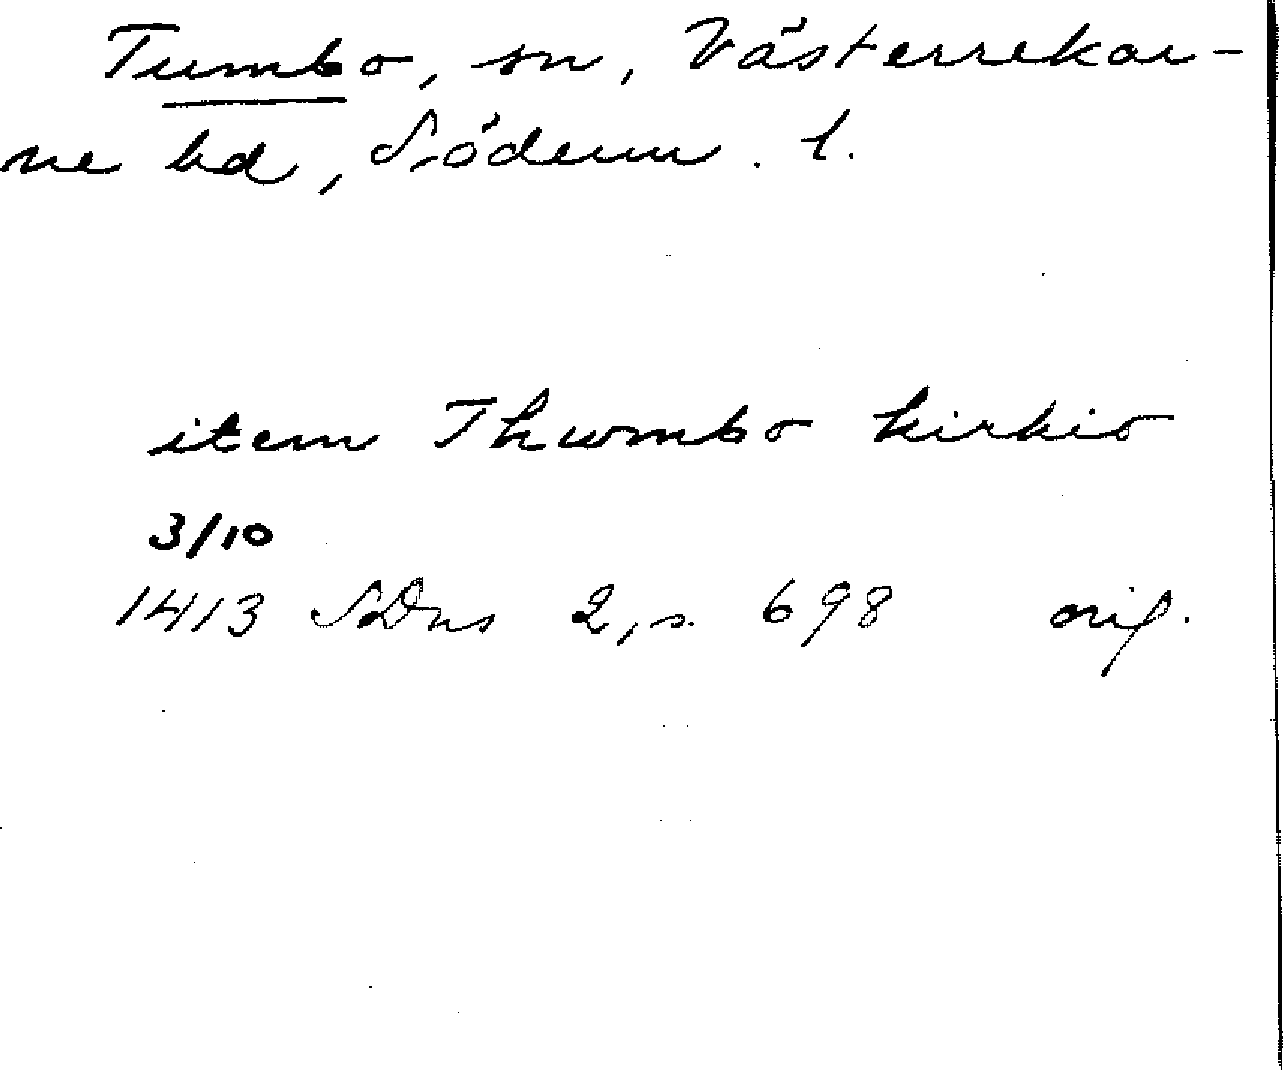 Tumbo, sn, Västerrekar-
ne hd, Söderm. l.
item Thwmbo kirkio
3/10
1413 SDns 2, s. 698 orig.